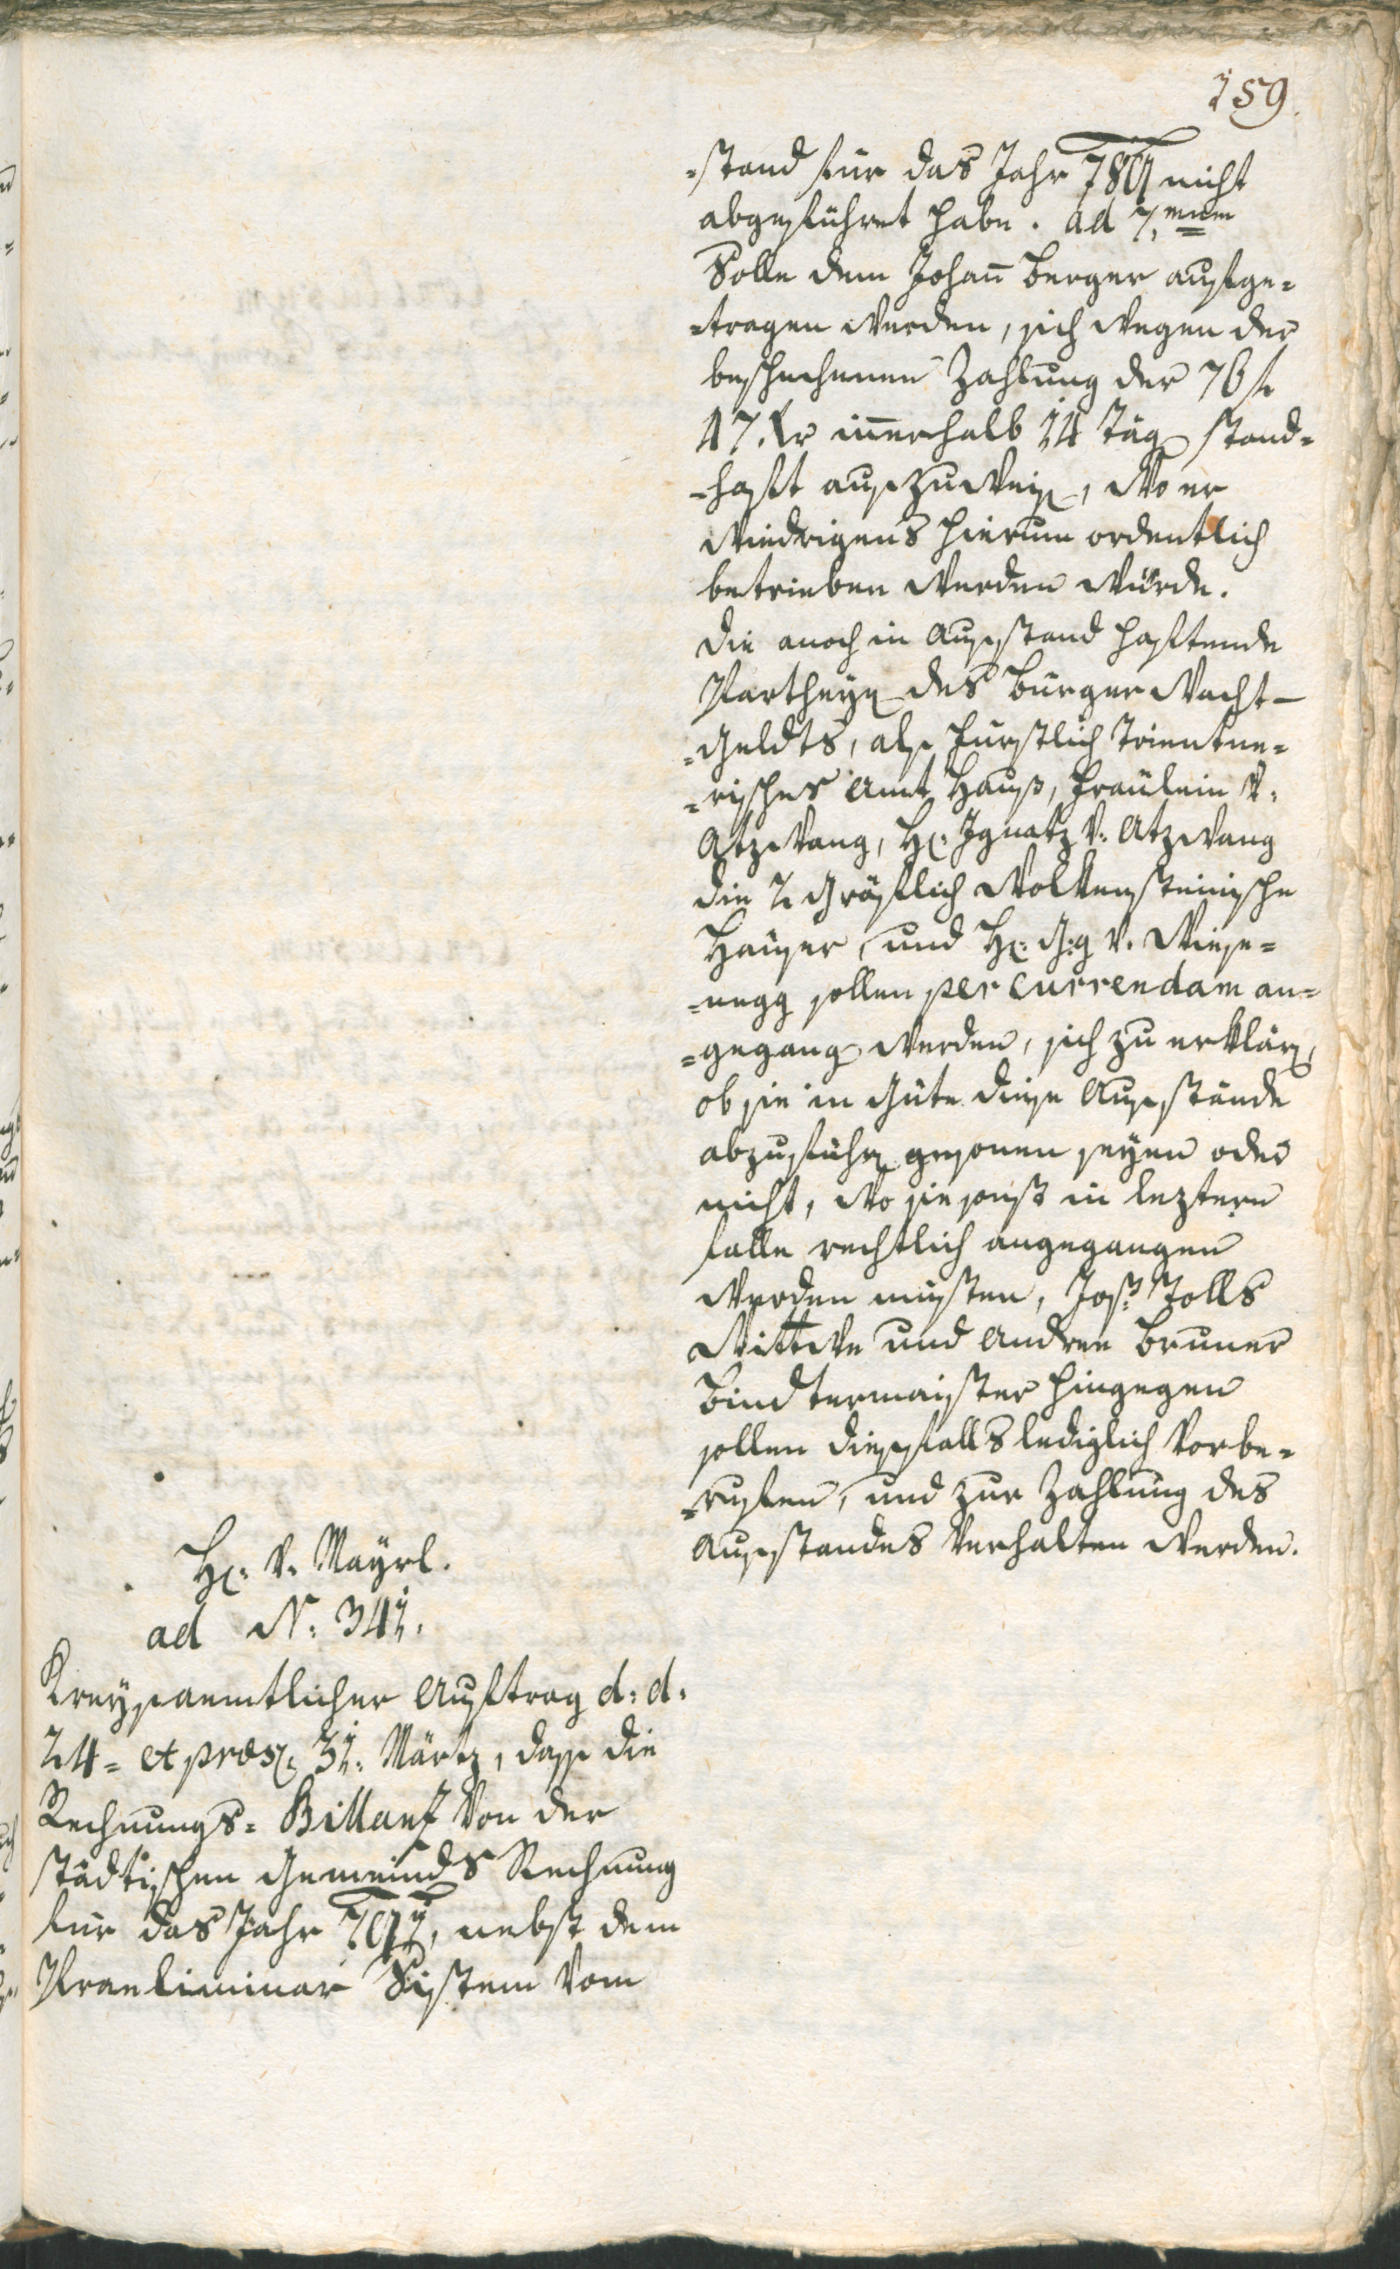 159.
-stand für das Jahr 789 nicht
abgeführet habe. ad 7,mum
Solle dem Johan̄ Berger aufge-
-tragen werden, sich wegen der
beschechenen Zahlung der 76 f
47. kr in̄erhalb 14 Täg stand-
-haft auszuweis, wo er
wiedrigens hierum ordentlich
betrieben werden würde.
Die anoch in Ausstand haftende
Partheyen des Burger Wacht-
-Geldts, als fürstlich Trientne-
-risches Amt Hauß, Fräulein v.
Atzwang, H: Ignatz v. Atzwang
die 2 Gräflich Wolkensteinische
Häuser, und H: G:g v. Wiese-
-negg sollen per currendam an-
-gegang werden, sich zu erklären,
ob sie in Güte diese Ausstände
abzuführen gesonen seyen oder
nicht, wo sie sonst in leztern
falle rechtlich angegangen
werden müsten, Jos: Tolls
Wittwe und Andree Bruner
Bindtermaister hingegen
sollen diesfalls lediglich vorbe-
-rufen, und zur Zahlung des
Ausstandes verhalten werden.
H: v. Mayrl.
ad N: 341.
Kreysaemtlicher Auftrag d: d:
24- et præs: 31: Märtz, dass die
Rechnungs- Billanz von der
städtischen Gemeinds Rechnung
für das Jahr 791, nebst dem
Praeliminar Sistem vom